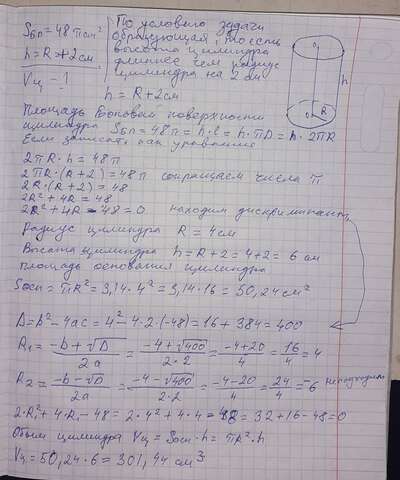 Sбп = 48π см²
h = R + 2 см
Vц - ?
По условию задачи
образующая, то есть
высота цилиндра
длиннее чем радиус
цилиндра на 2 см
h = R + 2 см
O₁
h
O R
Площадь боковой поверхности
цилиндра Sбп = 48π = h·l = h·πD = h·2πR
Если записать как уравнение
2πR·h = 48π
2πR·(R+2) = 48π сокращаем числа π
2R·(R+2) = 48
2R² + 4R = 48
2R² + 4R - 48 = 0 находим дискриминант,
Радиус цилиндра R = 4 см
Высота цилиндра h = R + 2 = 4 + 2 = 6 см
Площадь основания цилиндра
Sосн = πR² = 3,14·4² = 3,14·16 = 50,24 см²
D = b² - 4ac = 4² - 4·2·(-48) = 16 + 384 = 400
R₁ = (-b + √D)/2a = (-4 + √400)/2·2 = (-4 + 20)/4 = 16/4 = 4
R₂ = (-b - √D)/2a = (-4 - √400)/2·2 = (-4 - 20)/4 = 24/4 = -6 не подходит
2·R² + 4·R - 48 = 2·4² + 4·4 - 48 = 32 + 16 - 48 = 0
Объем цилиндра Vц = Sосн·h = πR²·h
Vц = 50,24·6 = 301,44 см³